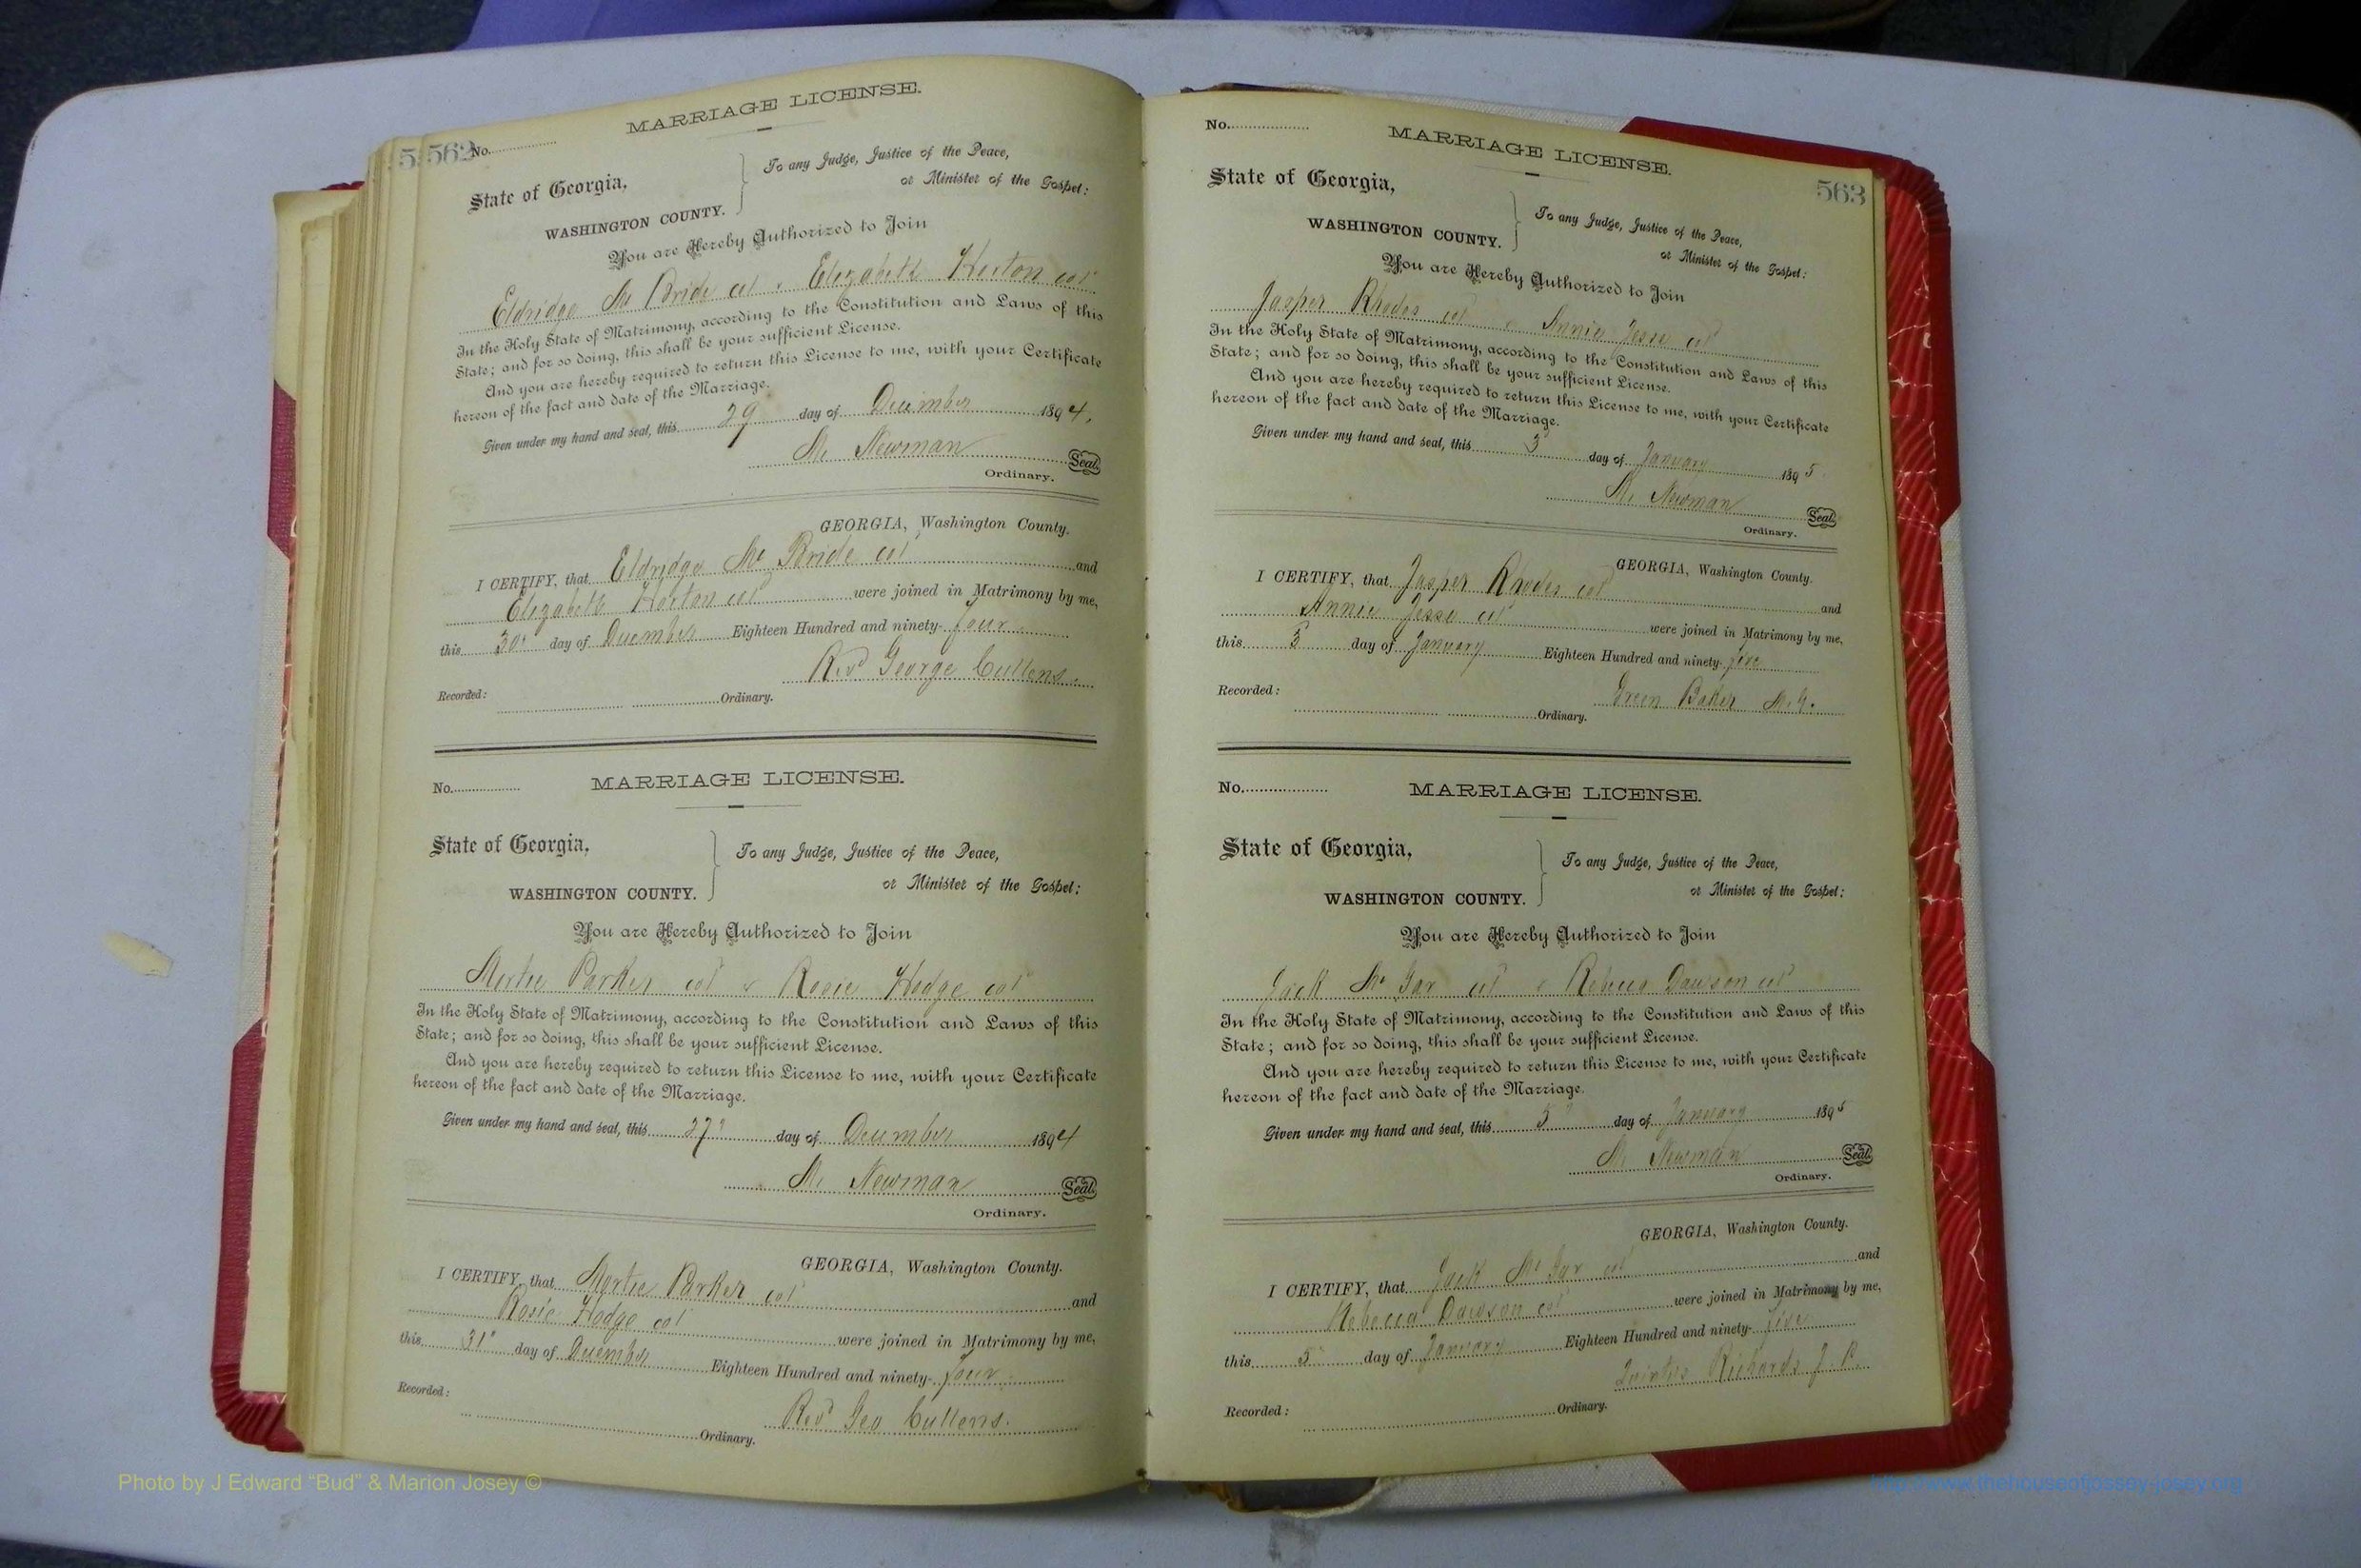 562
No.
MARRIAGE LICENSE.
State of Georgia,
WASHINGTON COUNTY.
To any Judge, Justice of the Peace,
or Minister of the Gospel:
You are Hereby Authorized to Join
Eldridge Mc Bride col & Elizabeth Horton col
In the Holy State of Matrimony, according to the Constitution and Laws of this
State; and for so doing, this shall be your sufficient License.
And you are hereby required to return this License to me, with your Certificate
hereon of the fact and date of the Marriage.
Given under my hand and seal, this 29 day of December 1894.
M. Newman Seal
Ordinary.
GEORGIA, Washington County.
I CERTIFY, that Eldridge Mc Bride col and
Elizabeth Horton col were joined in Matrimony by me,
this 30" day of December Eighteen Hundred and ninety-four
Revd George Cullens
Recorded: Ordinary.
No. MARRIAGE LICENSE.
State of Georgia,
WASHINGTON COUNTY.
To any Judge, Justice of the Peace,
or Minister of the Gospel:
You are Hereby Authorized to Join
Parker col & Rosie Hodge col
In the Holy State of Matrimony, according to the Constitution and Laws of this
State; and for so doing, this shall be your sufficient License.
And you are hereby required to return this License to me, with your Certificate
hereon of the fact and date of the Marriage.
Given under my hand and seal, this 27" day of December 1894
M. Newman Seal
Ordinary.
GEORGIA, Washington County.
I CERTIFY, that Parker col and
Rosie Hodge col were joined in Matrimony by me,
this 31" day of December Eighteen Hundred and ninety-four
Revd Geo Cullens.
Recorded: Ordinary.
No. MARRIAGE LICENSE.
563
State of Georgia,
WASHINGTON COUNTY.
To any Judge, Justice of the Peace,
or Minister of the Gospel:
You are Hereby Authorized to Join
Jasper Rhodes col & Annie Jesse col
In the Holy State of Matrimony, according to the Constitution and Laws of this
State; and for so doing, this shall be your sufficient License.
And you are hereby required to return this License to me, with your Certificate
hereon of the fact and date of the Marriage.
Given under my hand and seal, this 3 day of January 1895
M. Newman Seal
Ordinary.
GEORGIA, Washington County.
I CERTIFY, that Jasper Rhodes col and
Annie Jesse col were joined in Matrimony by me,
this 3 day of January Eighteen Hundred and ninety-five
Green Baker M.G.
Recorded: Ordinary.
No. MARRIAGE LICENSE.
State of Georgia,
WASHINGTON COUNTY.
To any Judge, Justice of the Peace,
or Minister of the Gospel:
You are Hereby Authorized to Join
Jack Mc Gar col & Rebecca Dawson col
In the Holy State of Matrimony, according to the Constitution and Laws of this
State; and for so doing, this shall be your sufficient License.
And you are hereby required to return this License to me, with your Certificate
hereon of the fact and date of the Marriage.
Given under my hand and seal, this 5" day of January 1895
M. Newman Seal
Ordinary.
GEORGIA, Washington County.
I CERTIFY, that Jack Mc Gar col and
Rebecca Dawson col were joined in Matrimony by me,
this 5 day of January Eighteen Hundred and ninety-five
Richards J. P.
Recorded: Ordinary.
Photo by J Edward “Bud” & Marion Josey ©
http://www.thehouseofjossey-josey.org